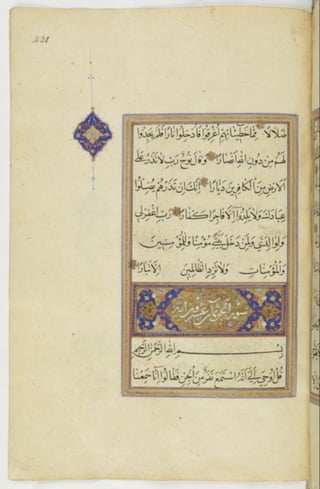 428
ضلالا مما خطيئاتهم اغرقوا فادخلوا نارا فلم يجدوا
لهم من دون الله انصارا وقال نوح رب لا تذر على
الارض من الكافرين ديارا انك ان تذرهم يضلوا
عبادك ولا يلدوا الا فاجرا كفارا رب اغفر لى
ولوالدى ولمن دخل بيتى مؤمنا وللمؤمنين
والمؤمنات ولا تزد الظالمين الا تبارا
سورة الجن
بسم الله الرحمن الرحيم
قل اوحى الى انه استمع نفر من الجن فقالوا انا سمعنا